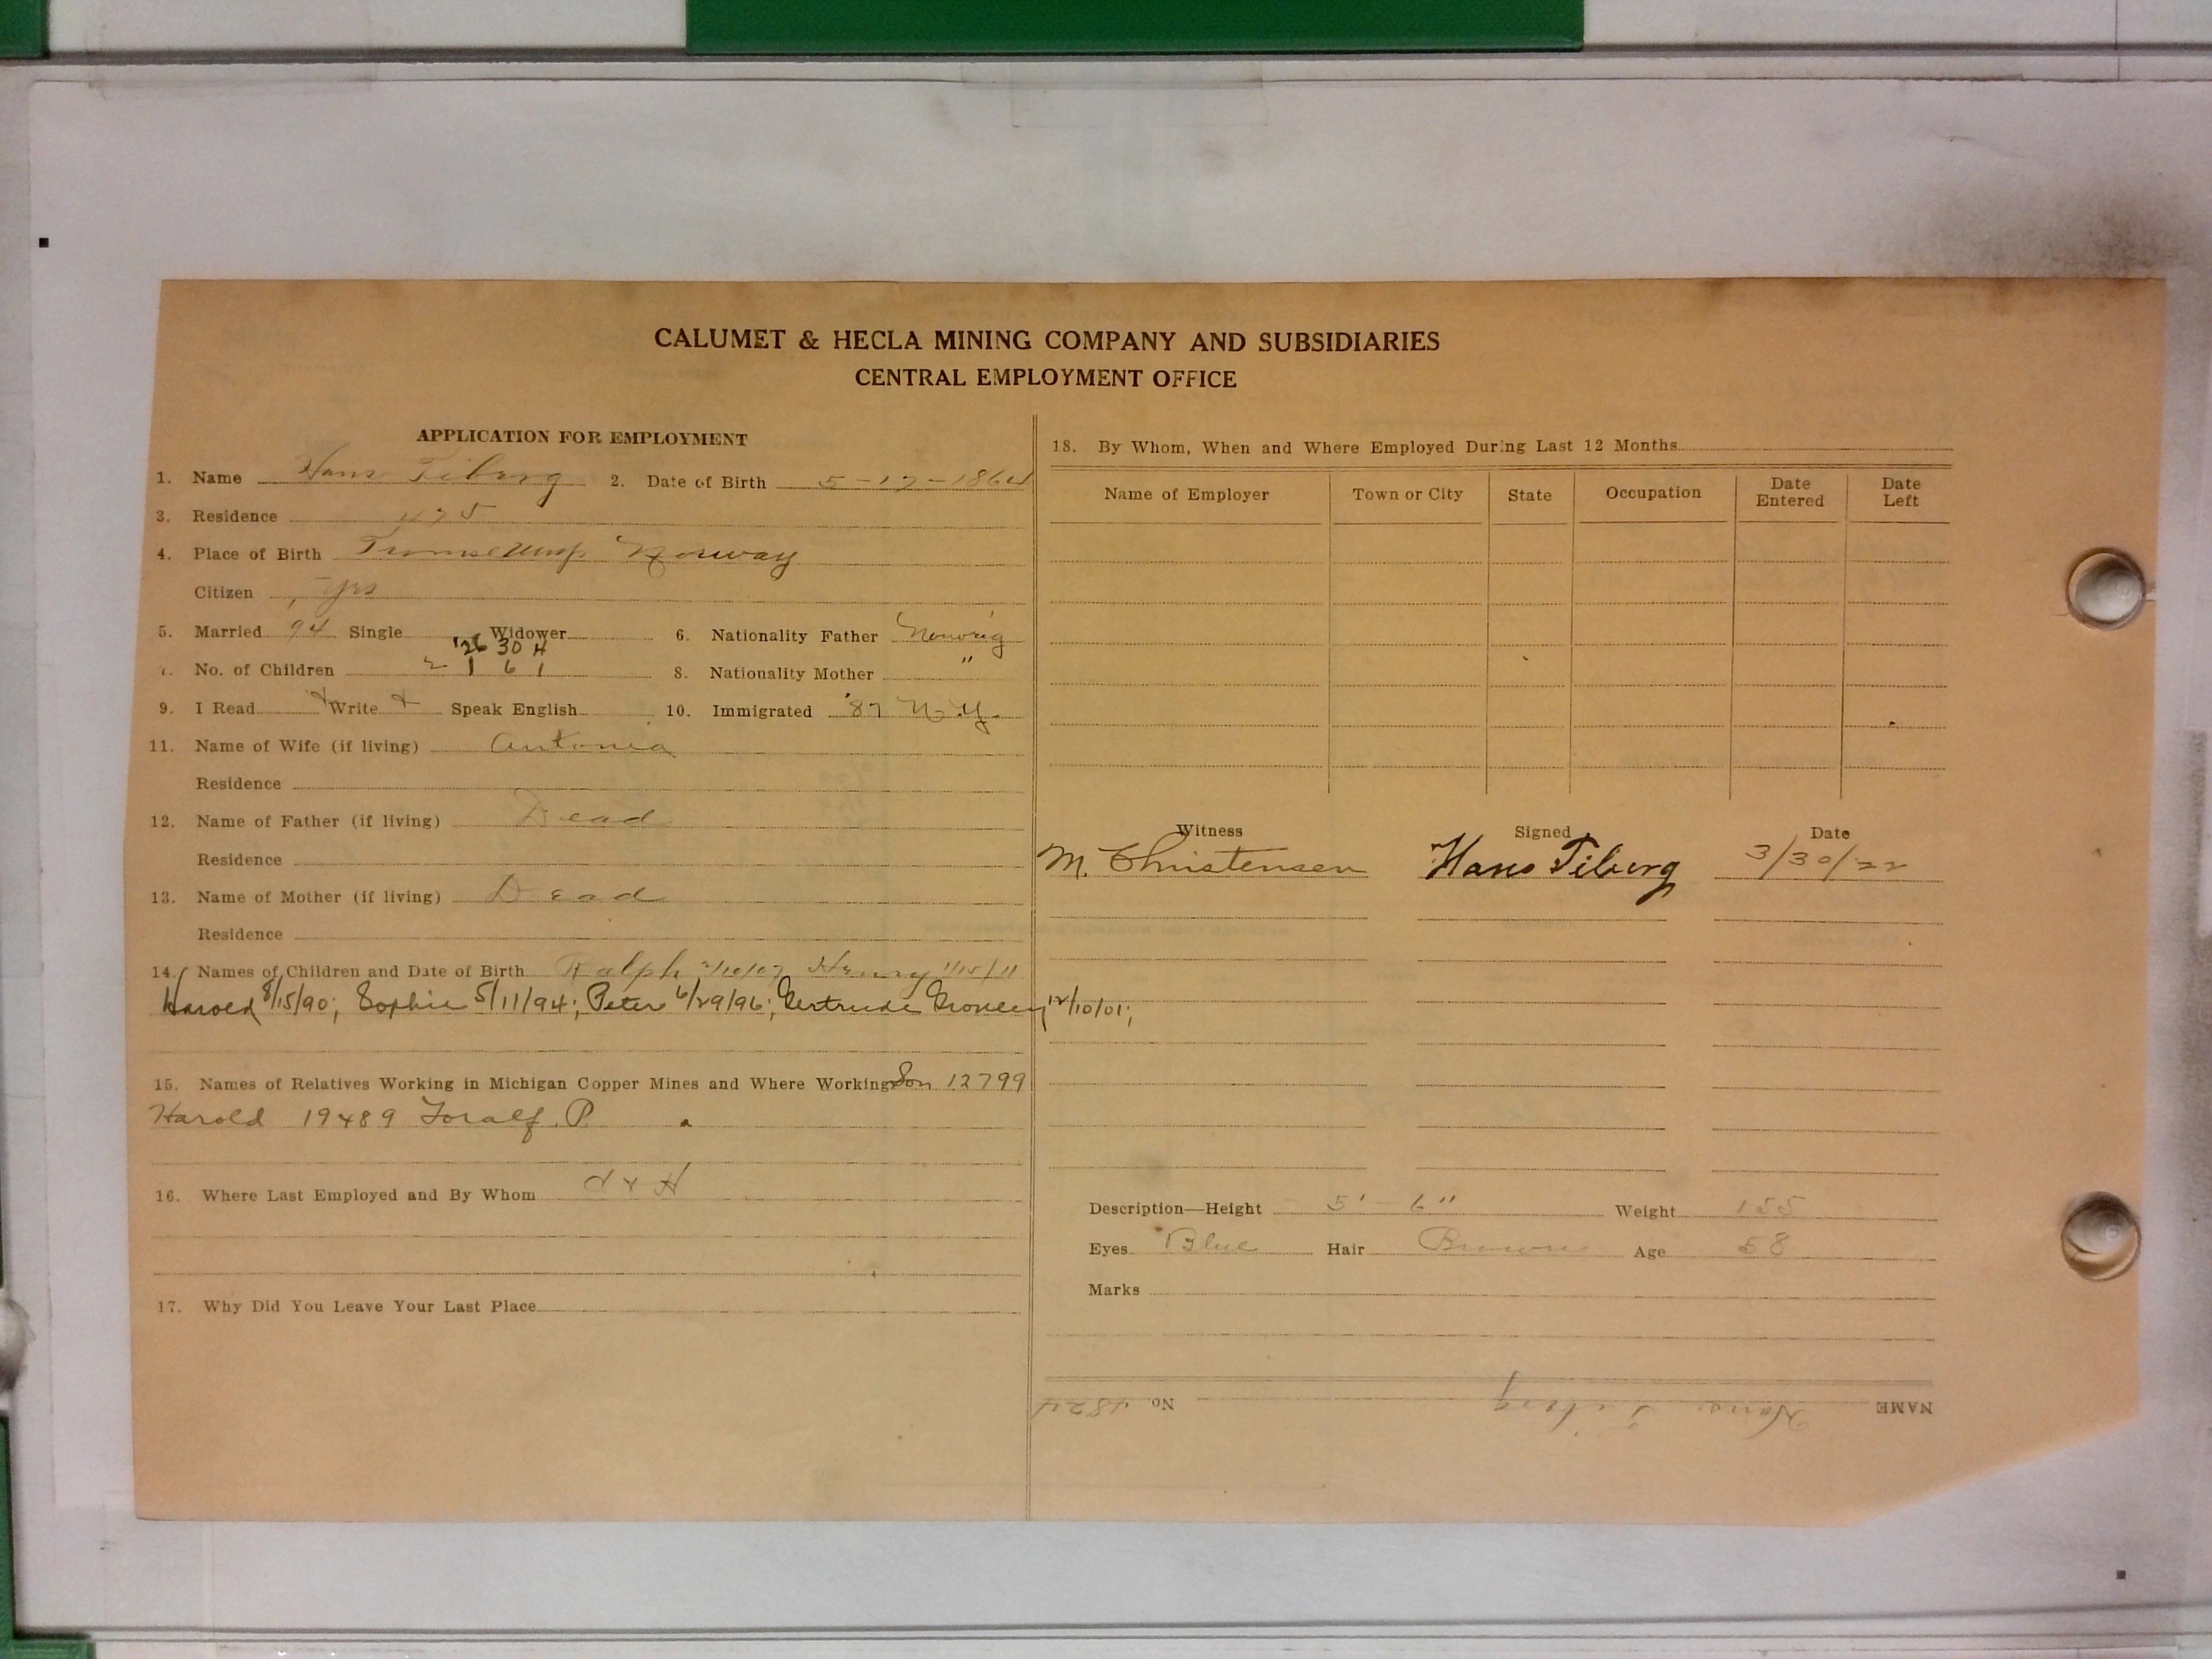 CALUMET & HECLA MINING COMPANY AND SUBSIDIARIES
CENTRAL EMPLOYMENT OFFICE
APPLICATION FOR EMPLOYMENT
1. Name Hans Tiberg 2. Date of Birth 5-17-1864
3. Residence 475
4. Place of Birth Norway
Citizen yes
5. Married 94 Single Widower 6. Nationality Father
'26 30 H
7. No. of Children 2 1 6 1 8. Nationality Mother "
9. I Read x Write x Speak English 10. Immigrated '87 N.Y.
11. Name of Wife (if living) Antonia
Residence
12. Name of Father (if living) Dead
Residence
13. Name of Mother (if living) Dead
Residence
14. Names of Children and Date of Birth Ralph 2/10/07 Henry 1/15/11
Harold 8/15/90; Sophie 5/11/94; Peter 6/29/96; Gertrude 12/10/01;
15. Names of Relatives Working in Michigan Copper Mines and Where Working Son 12799
Harold 19489 Toralf P.
16. Where Last Employed and By Whom C & H
17. Why Did You Leave Your Last Place
18. By Whom, When and Where Employed During Last 12 Months
Name of Employer Town or City State Occupation Date Entered Date Left
Witness Signed Date
M. Christensen Hans Tiberg 3/30/22
Description—Height 5' - 6" Weight 155
Eyes Blue Hair Brown Age 58
Marks
NAME Hans Tiberg No. 4824